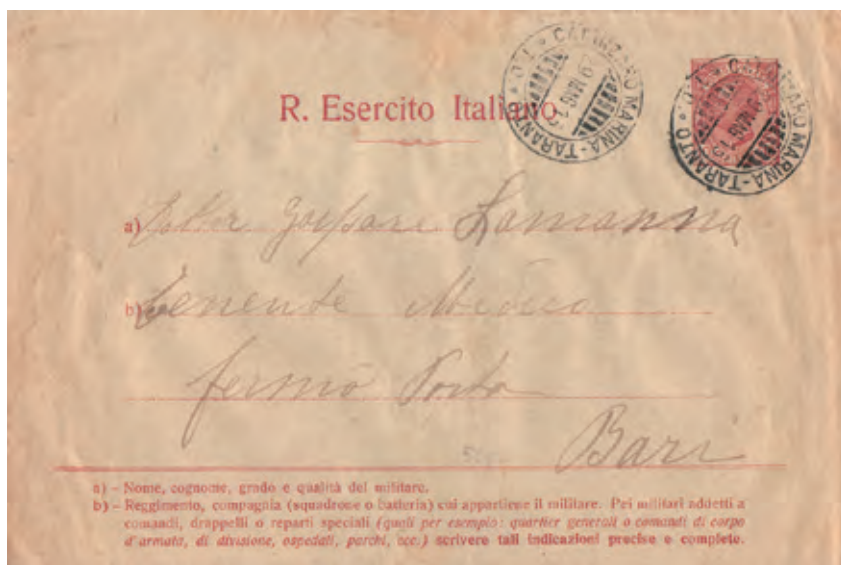 R. Esercito Italiano
CATANZARO MARINA-TARANTO
CATANZARO MARINA-TARANTO
a) Gaspare Lamanna
b) Tenente Medico
fermo Posta
Bari
a) – Nome, cognome, grado e qualità del militare.
b) – Reggimento, compagnia (squadrone o batteria) cui appartiene il militare. Pei militari addetti a
comandi, drappelli o reparti speciali (quali per esempio: quartier generali o comandi di corpo
d'armata, di divisione, ospedali, parchi, ecc.) scrivere tali indicazioni precise e complete.